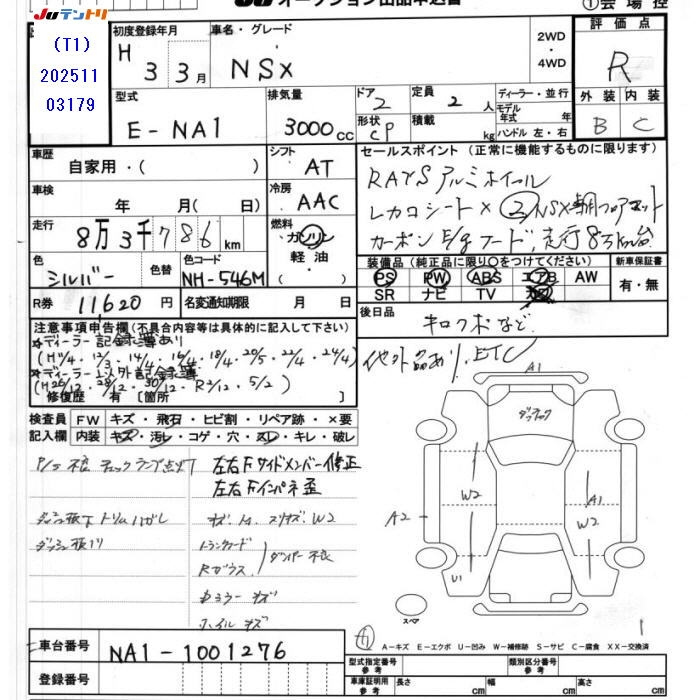 JUナントリ
オークション出品申込書
①会場控
(T1)
202511
03179
初度登録年月
H 3 3月
車名・グレード
NSX
2WD
・
4WD
評価点
R
型式
E-NA1
排気量
3000cc
ドア
2
形状
CP
定員
2人
積載
kg
ディーラー・並行
モデル年式 年
ハンドル 左・右
外装 内装
B C
車歴
自家用・( )
シフト
AT
車検
年 月( 日)
冷房
AAC
走行
8万3千786km
燃料
ガソリン
軽油
色
シルバー
色替
色コード
NH-546M
R券
11620円
名変通知期限 月 日
セールスポイント(正常に機能するものに限ります)
RAYSアルミホイール
レカロシート×②
カーボン
走行8万km台
装備品(純正品に限り○をつけてください)
PS PW ABS エアB AW
SR ナビ TV
新車保証書
有・無
後日品
キロクボなど
他外品あり.ETC
注意事項申告欄(不具合内容等は具体的に記入して下さい)
☆ディーラー記録簿あり
(H11/4・12/3・14/4・16/4・18/4・20/5・22/4・24/4)
☆ディーラー以外記録簿
(H26/12・28/12・30/12・R2/12・5/2)
修復歴 有 [箇所 ]
検査員記入欄
FW キズ・飛石・ヒビ割・リペア跡・×要
内装 キズ・汚レ・コゲ・穴・スレ・キレ・破レ
チェックランプ点灯
左右Fサイドメンバー修正
左右Fインパネ歪
トリムハガレ
W2
トランクフード
Rガラス
ダンパー不良
ミラーキズ
ホイルキズ
A1
W2
A1
A2
W2
U1
スペア
A-キズ E-エクボ U-凹み W-補修跡 S-サビ C-腐食 XX-交換済
車台番号
NA1-1001276
登録番号
型式指定番号 参考
類別区分番号 参考
車庫証明用 参考
長さ cm
幅 cm
高さ cm